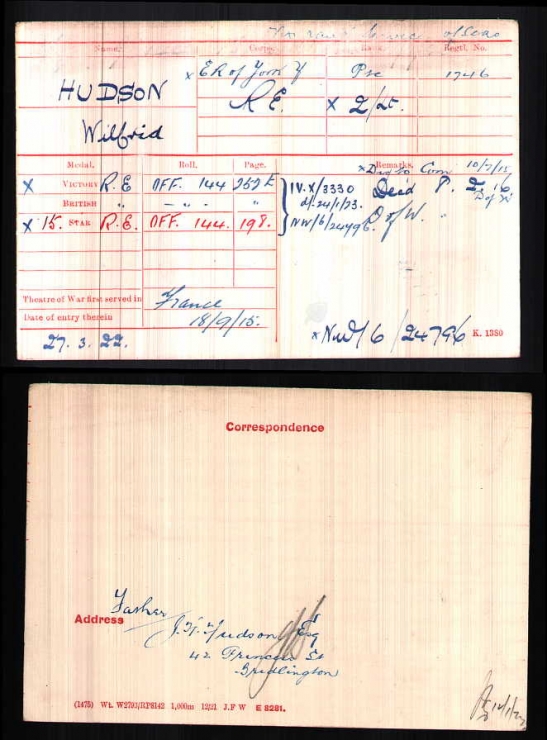 Name. Corps. Rank. Regtl. No.
HUDSON
Wilfrid
x E R of York Y Pte 1746
R.E. x 2/Lt.
Medal. Roll. Page. Remarks.
x Disch to Com 10/7/15
X VICTORY R.E OFF. 144 252 E
BRITISH " — " — "
X 15. STAR R.E. OFF. 144. 198.
IV.X/3330
d/24/1/23.
NW/6/24796.
Died
D of W.
Theatre of War first served in France
Date of entry therein 18/9/15.
27. 3. 22.
x NW/6/24796 K. 1380
Correspondence
Father
Address J. W. Hudson Esq
42 Princess St
Bridlington
(1475) Wt. W2793/RP8142 1,000m 12/21 J.F.W E 8281.